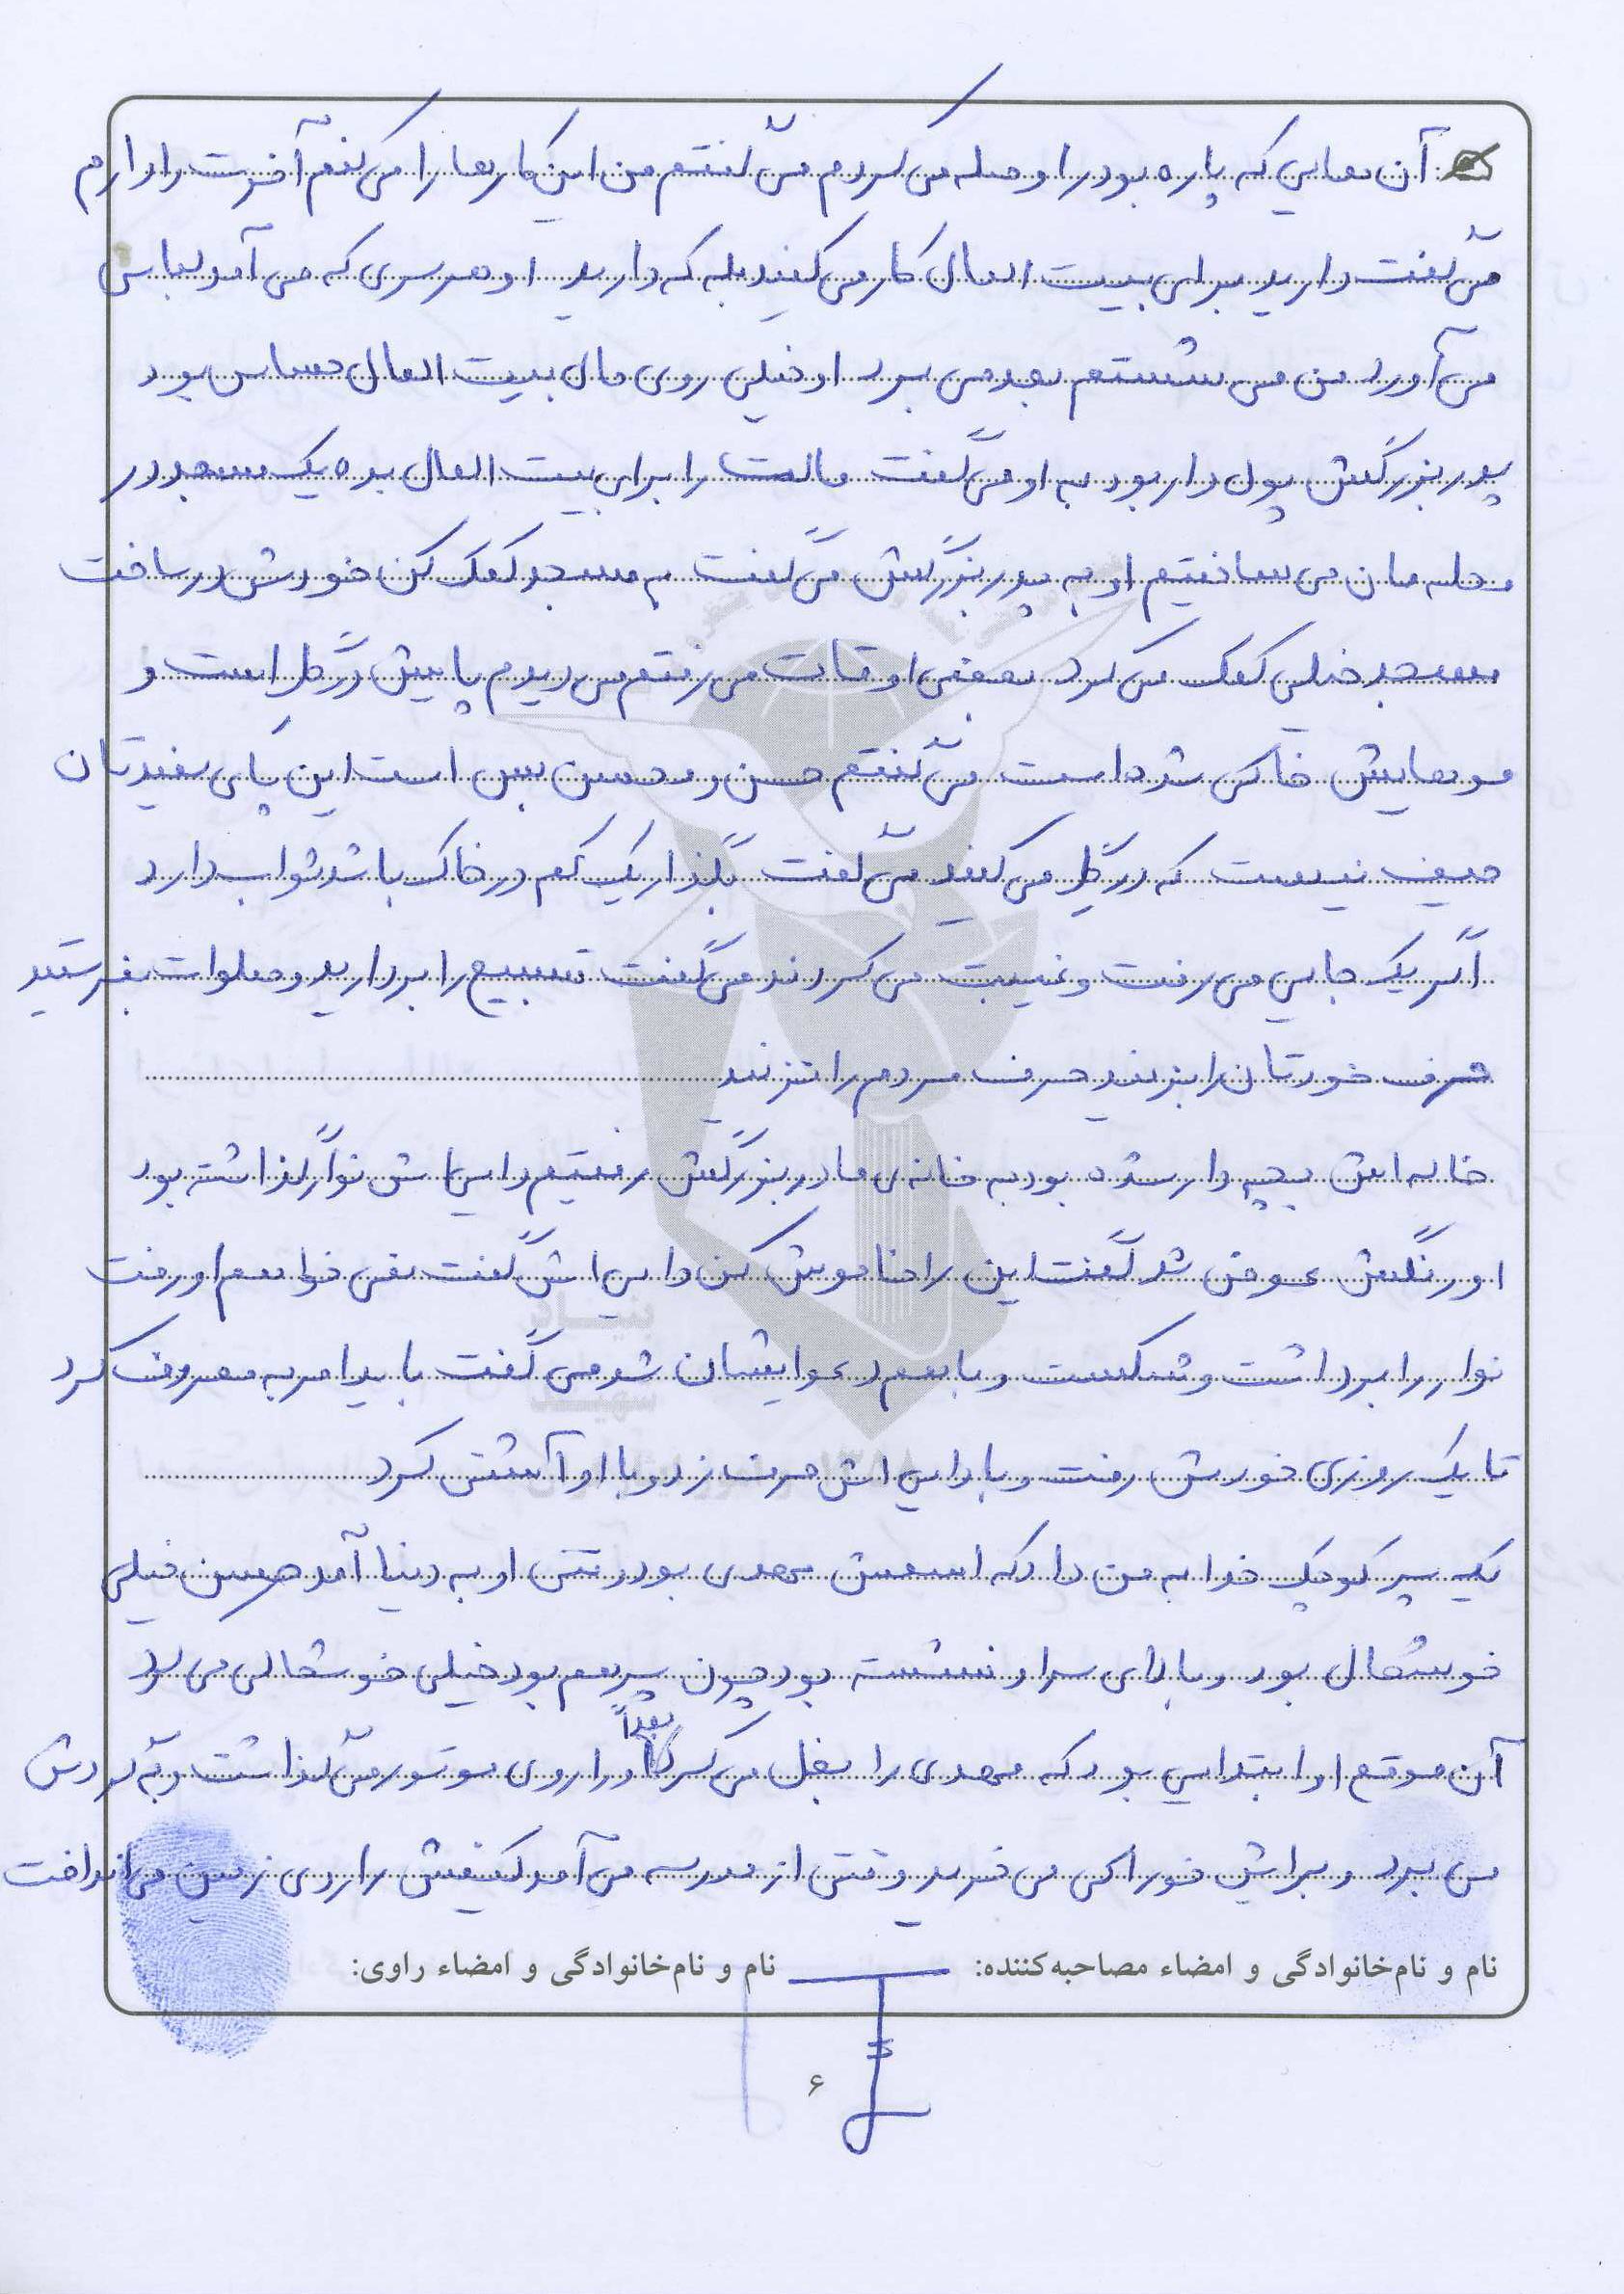 آن هایی که پاره بود را وصله می کردم می گفتم من این کارها را می کنم آخرت را دارم
می گفت دارید برای بیت المال کار می کنید بله که دارید او هر سری که می آمد لباس
می آورد من می شستم بعد می برد او خیلی روی مال بیت المال حساس بود
پدر بزرگش پول دار بود به او می گفت مالت را برای بیت المال بده یک مسجد در
محله مان می ساختیم او به پدر بزرگش می گفت به مسجد کمک کن خودش در ساخت
مسجد خیلی کمک می کرد بعضی اوقات می رفتم می دیدم پایش در گل است و
موهایش خاکی شده است می گفتم حسن و محسن بس است این پای سفیدتان
حیف نیست که در گل می کنید می گفت بگذار یک کم در خاک باشد ثواب دارد
اگر یک جایی می رفت و غیبت می کردند می گفت تسبیح را بردارید و صلوات بفرستید
حرف خودتان را بزنید حرف مردم را نزنید
خاله اش بچه دار شده بود به خانه ی مادر بزرگش رفتیم دایی اش نوار گذاشته بود
او رنگش عوض شد گفت این را خاموش کن دایی اش گفت نمی خواهم او رفت
نوار را برداشت و شکست و با هم دعوایشان شد می گفت باید امر به معروف کرد
تا یک روزی خودش رفت و با دایی اش حرف زد و با او آشتی کرد
یک پسر کوچک خدا به من داد که اسمش مهدی بود وقتی او به دنیا آمد حسن خیلی
خوشحال بود و بالای سر او نشسته بود چون پسر هم بود خیلی خوشحالی می کرد
آن موقع او ابتدایی بود که مهدی را بغل می کرد بعداً او را روی موتور می گذاشت و به گردش
می برد و برایش خوراکی می خرید وقتی از مدرسه می آمد کیفش را روی زمین می انداخت
نام و نام‌خانوادگی و امضاء مصاحبه‌کننده: نام و نام‌خانوادگی و امضاء راوی:
۶